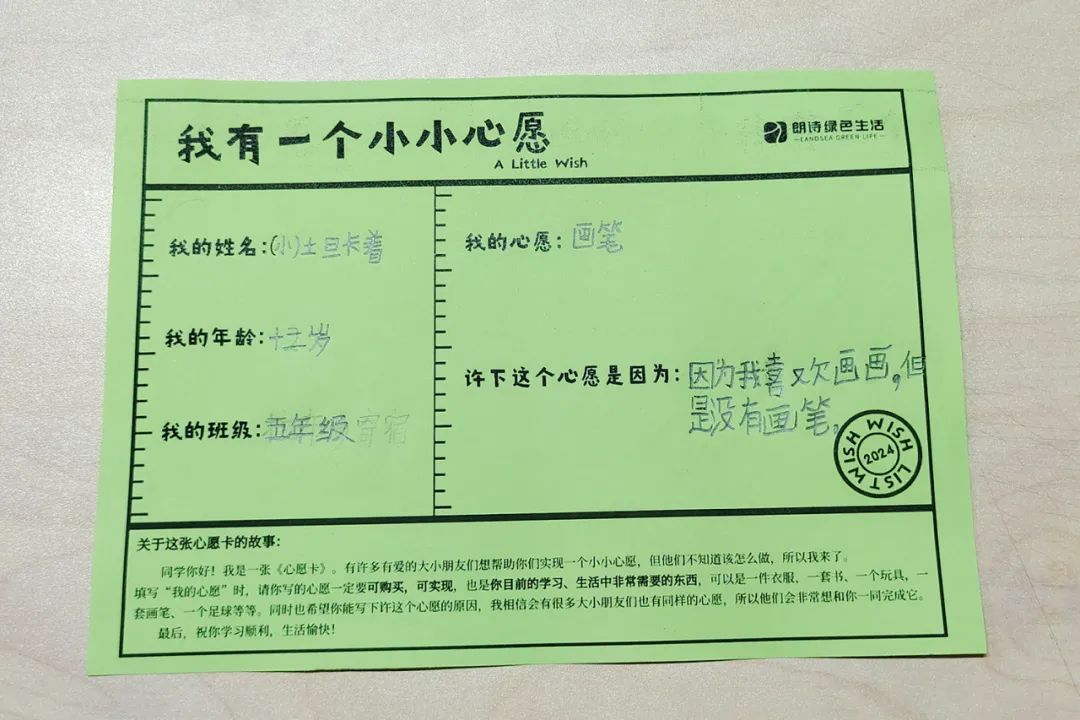 我有一个小小心愿
A Little Wish
朗诗绿色生活
—LANDSEA GREEN LIFE—
我的姓名:(小)土旦卡着
我的年龄:十二岁
我的班级:五年级
我的心愿:画笔
许下这个心愿是因为:因为我喜欢画画,但
是没有画笔。
WISH WISH LIST
2024
关于这张心愿卡的故事:
同学你好!我是一张《心愿卡》。有许多有爱的大小朋友们想帮助你们实现一个小小心愿,但他们不知道该怎么做,所以我来了。
填写“我的心愿”时,请你写的心愿一定要可购买,可实现,也是你目前的学习、生活中非常需要的东西,可以是一件衣服,一套书、一个玩具,一
套画笔、一个足球等等。同时也希望你能写下许这个心愿的原因,我相信会有很多大小朋友们也有同样的心愿,所以他们会非常想和你一同完成它。
最后,祝你学习顺利,生活愉快!